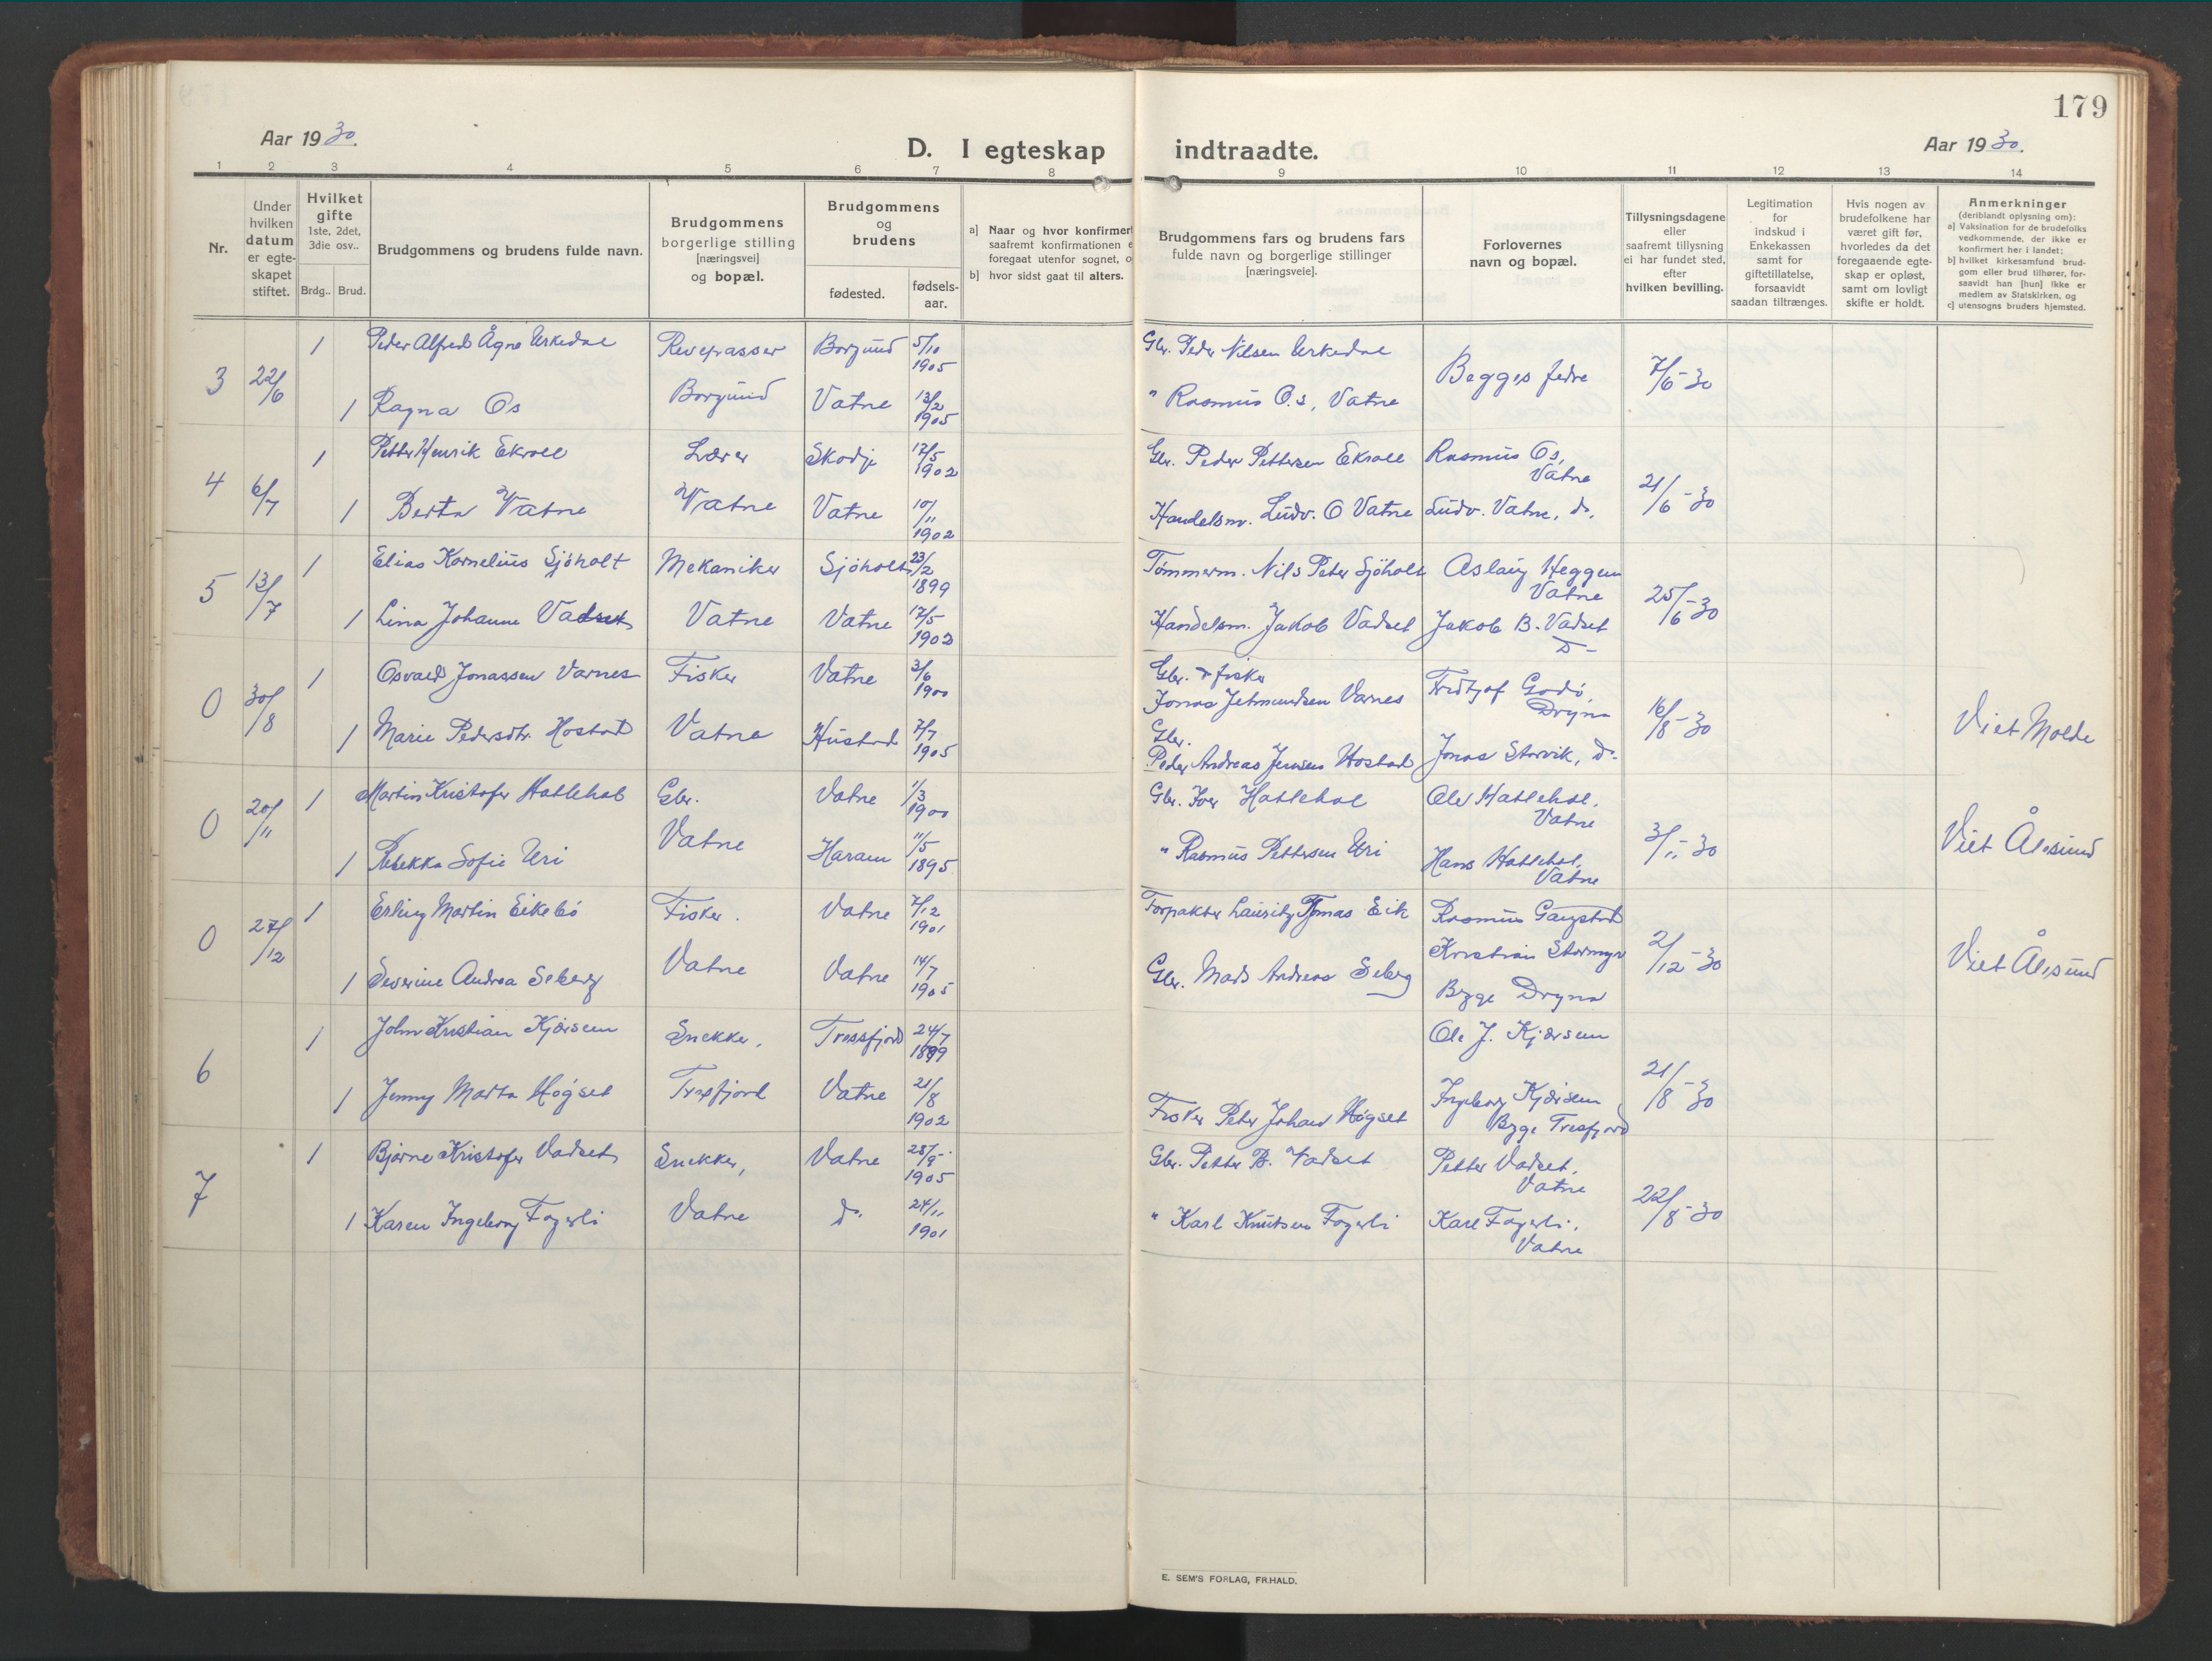 179
Aar 1930.
D. I egteskap indtraadte.
Aar 1930.
1 2 3 4 5 6 7 8 9 10 11 12 13 14
Nr.
Under hvilken datum er egte-skapet stiftet.
Hvilket gifte 1ste, 2det, 3die osv..
Brdg.. Brud.
Brudgommens og brudens fulde navn.
Brudgommens borgerlige stilling [næringsvei] og bopæl.
Brudgommens og brudens
fødested.
fødsels-aar.
a] Naar og hvor konfirmert
saafremt konfirmationen
foregaat utenfor sognet,
b] hvor sidst gaat til alters.
Brudgommens fars og brudens fars
fulde navn og borgerlige stillinger
[næringsveie].
Forlovernes
navn og bopæl.
Tillysningsdagene
eller
saafremt tillysning
ei har fundet sted,
efter
hvilken bevilling.
Legitimation
for
indskud i
Enkekassen
samt for
giftetillatelse,
forsaavidt
saadan tiltrænges.
Hvis nogen av
brudefolkene har
været gift før,
hvorledes da det
foregaaende egte-
skap er opløst,
samt om lovligt
skifte er holdt.
Anmerkninger
(deriblandt oplysning om):
a] Vaksination for de brudefolks
vedkommende, der ikke er
konfirmert her i landet;
b] hvilket kirkesamfund brud-
gom eller brud tilhører, for-
saavidt han [hun] ikke er
medlem av Statskirken, og
c] utensogns bruders hjemsted.
3 22/6 1 Peder Alfred Ågne Urkedal Revepasser Borgund 5/10 1905 Gbr. Peder Nilsen Urkedal Begges fedre 7/6-30
1 Ragna Os Borgund Vatne 13/2 1905 " Rasmus Os, Vatne
4 6/7 1 Petter Henrik Ekroll Lærer Skodje 17/5 1902 Gbr. Peder Pettersen Ekroll Rasmus Os, Vatne 21/6-30
1 Berta Vatne Vatne Vatne 10/11 1902 Handelsm. Ludv. O Vatne Ludv. Vatne, do.
5 13/7 1 Elias Kornelius Sjøholt Mekaniker Sjöholt 23/2 1899 Tømmerm. Nils Peter Sjøholt Aslaug Heggem Vatne 25/6-30
1 Lina Johanne Vadset Vatne Vatne 17/5 1902 Handelsm. Jakob Vadset Jakob B. Vadset D-
0 30/8 1 Osvald Jonassen Varnes Fisker Vatne 3/6 1900 Gbr. & fisker Jonas Jetmundsen Varnes Fridtjof Godø, Dryna 16/8-30
1 Marie Pedersdtr. Hostad Vatne Hustad 7/7 1905 Gbr. Peder Andreas Jensen Hostad Jonas Storvik, D- Viet Molde
0 20/11 1 Martin Kristofer Hatlehol Gbr. Vatne 1/3 1900 Gbr. Iver Hatlehol Ole Hatlehol, Vatne 3/11-30
1 Rebekka Sofie Uri Vatne Haram 11/5 1895 " Rasmus Pettersen Uri Hans Hatlehol, Vatne Viet Ålesund
0 27/12 1 Erling Martin Eikebö Fisker. Vatne 7/12 1901 Forpakter Lauritz Tomas Eik Rasmus Gangstad Kristian Stormyr 2/12-30
1 Severine Andrea Seberg Vatne Vatne 14/7 1905 Gbr. Mads Andreas Seberg Begge Dryna Viet Ålesund
6 1 John Kristian Kjørsem Snekker, Tresfjord 24/7 1899 Ole J. Kjørsem 21/8-30
1 Jenny Marta Høgset Tresfjord Vatne 21/8 1902 Fisker Peter Johan Høgset Ingeborg Kjørsem Begge Tresfjord
7 1 Bjarne Kristofer Vadset Snekker, Vatne 28/9 1905 Gbr. Petter B. Vadset Petter Vadset, Vatne 22/8-30
1 Karen Ingeborg Fagerli Vatne do. 24/11 1901 " Karl Knutsen Fagerli Karl Fagerli, Vatne
E. SEM'S FORLAG, FR.HALD.